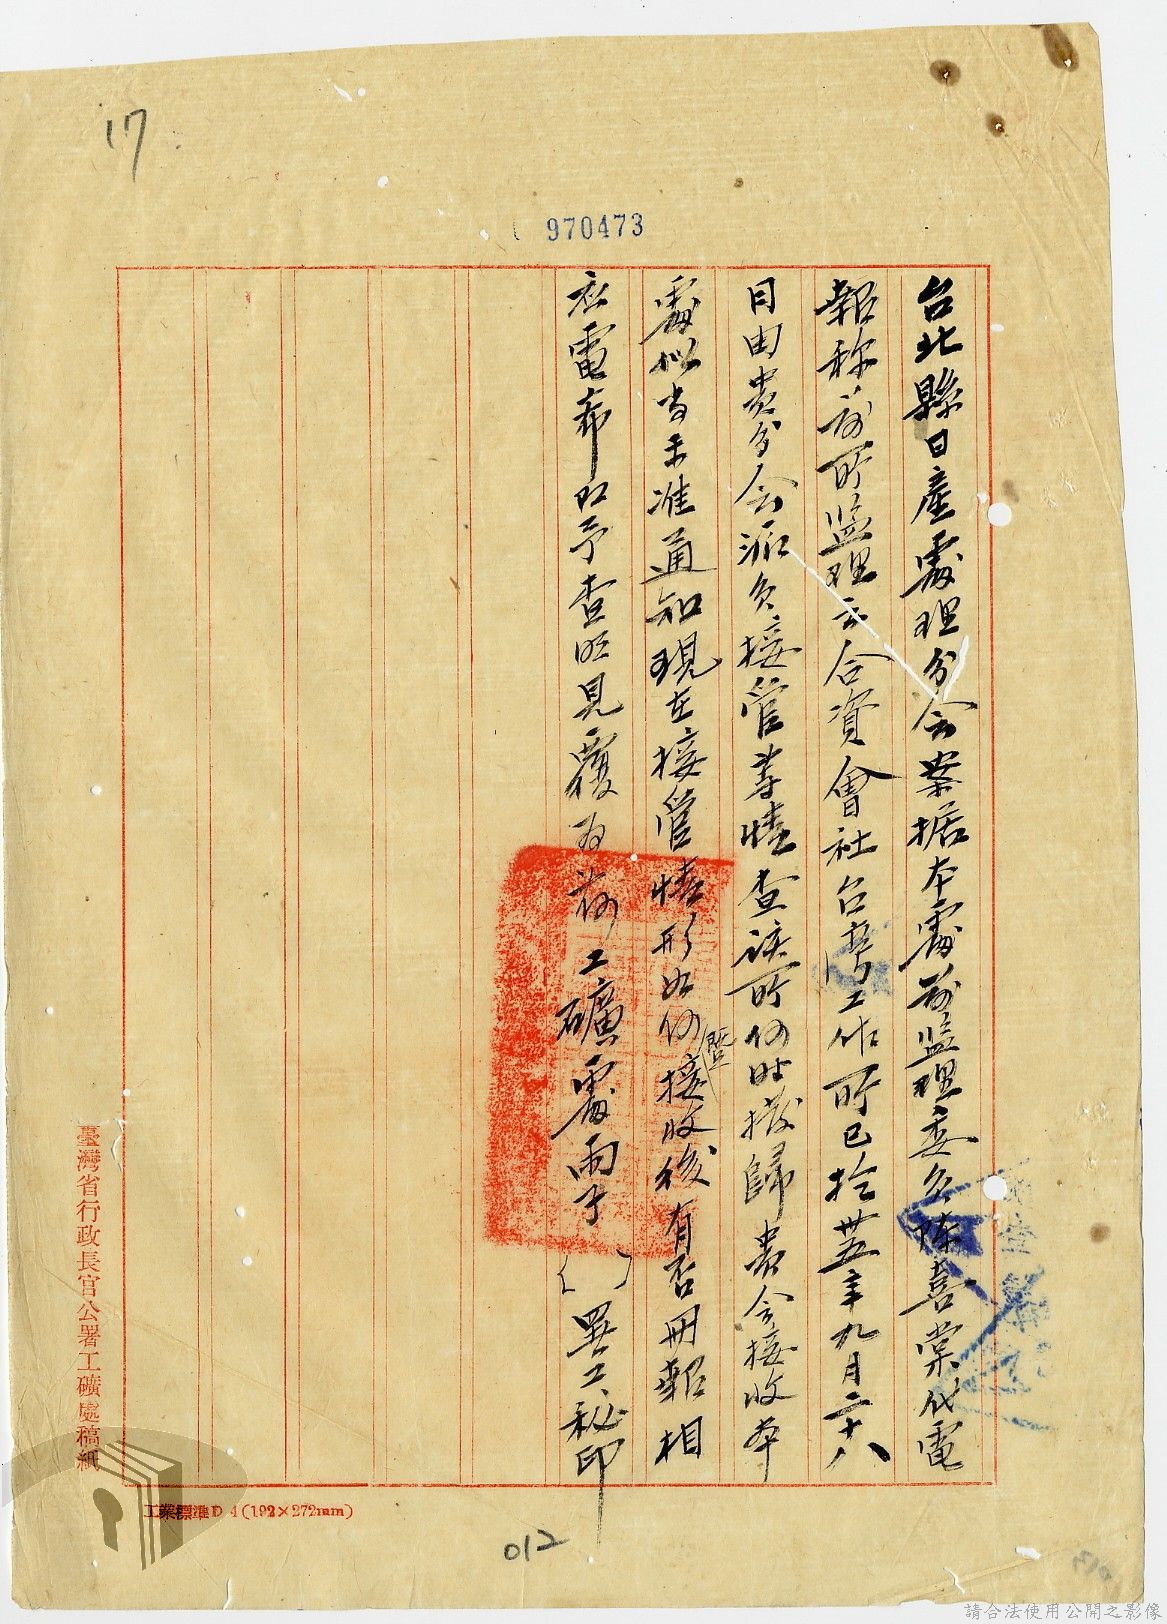 17
970473
台北縣日產處理分会案据本處前監理委員陳喜棠代電
報称前所監理云合資會社台灣工作所已於卅五年九月二十八
日由貴分会派員接管等情查該所何時撥歸貴会接收本
處似尚未准通知現在接管情形如何暨接收後有否冊報相
应電希即予查明見覆為荷工礦處雨于( )異工秘印
臺灣省行政長官公署工礦處稿紙
工業標準D 4(192×272mm)
012
請合法使用公開之影像